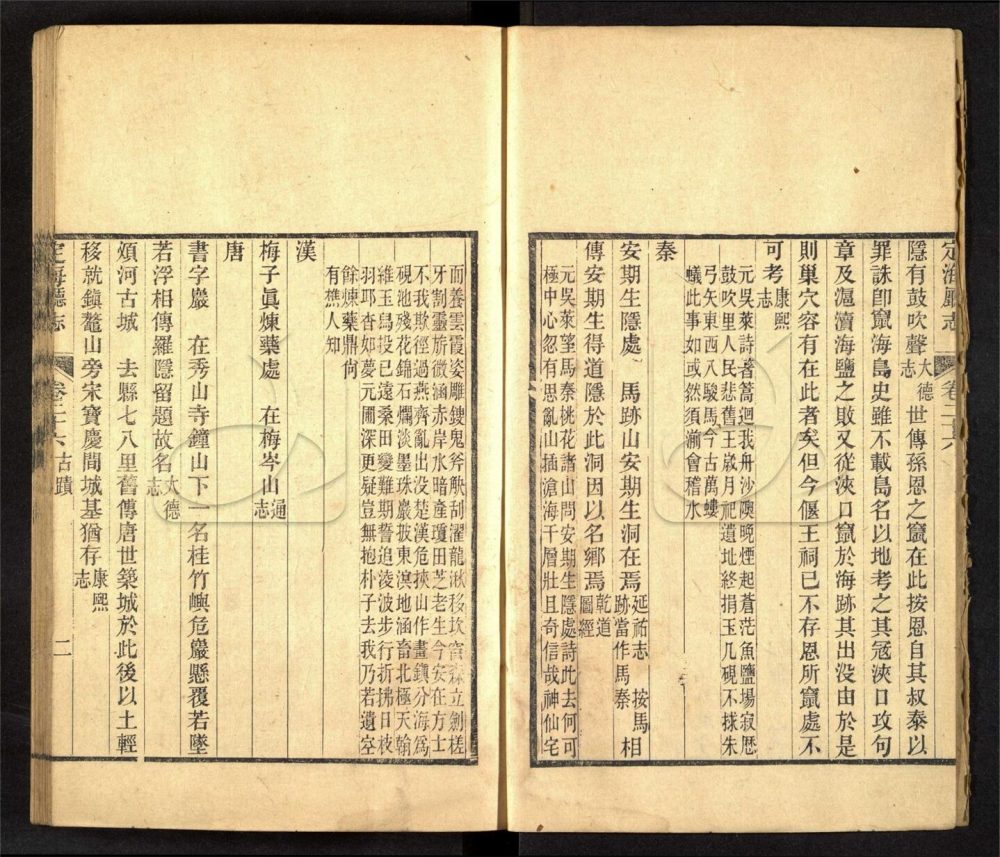 定海廳志 卷二十六
隱有鼓吹聲大德志世傳孫恩之竄在此按恩自其叔泰以
罪誅卽竄海島史雖不載島名以地考之其冦浹口攻句
章及滬瀆海鹽之敗又從浹口竄於海跡其出没由於是
則巢穴容有在此者矣但今偃王祠已不存恩所竄處不
可考康熙志
元吳萊詩蓍蒿迴我舟沙隩晚煙起蒼茫魚鹽場寂厯
鼓吹里人民悲舊王歲月祀遺址終捐玉几硯不捄朱
弓矢東西八駿馬今古萬螻
蟻此事如或然須瀬會稽水
秦
安期生隱處 馬跡山安期生洞在焉延祐志 按馬跡當作馬秦相
傳安期生得道隱於此洞因以名鄉焉乾道圖經
元吳萊望馬秦桃花諸山問安期生隱處詩此去何可
極中心忽有思亂山插滄海千層壯且奇信哉神仙宅
而養雲霞姿雕鎪鬼斧觖刮濯龍湫移坎宮森立劍槎
牙割靈旂微涵赤岸水暗產瓊田芝老生今安在方士
不我欺徑過燕齊亂出没楚漢危挾山作畫鎭分海爲
硯池殘花錦石爛淡墨珠巖披東溟地涵畜北極天翰
維玉舄投已遠桑田變難期誓追淩波步行折拂日枝
羽邛杳如夢元圃深更疑豈無抱朴子去我乃若遺空
餘煉藥鼎尚
有樵人知
漢
梅子眞煉藥處 在梅岑山通志
唐
書字巖 在秀山寺鐘山下一名桂竹嶼危巖懸覆若墜
若浮相傳羅隱留題故名大德志
煩河古城 去縣七八里舊傳唐世築城於此後以土輕
移就鎭鼇山旁宋寶慶間城基猶存康熙志
定海廳志 卷二十六 古蹟 二